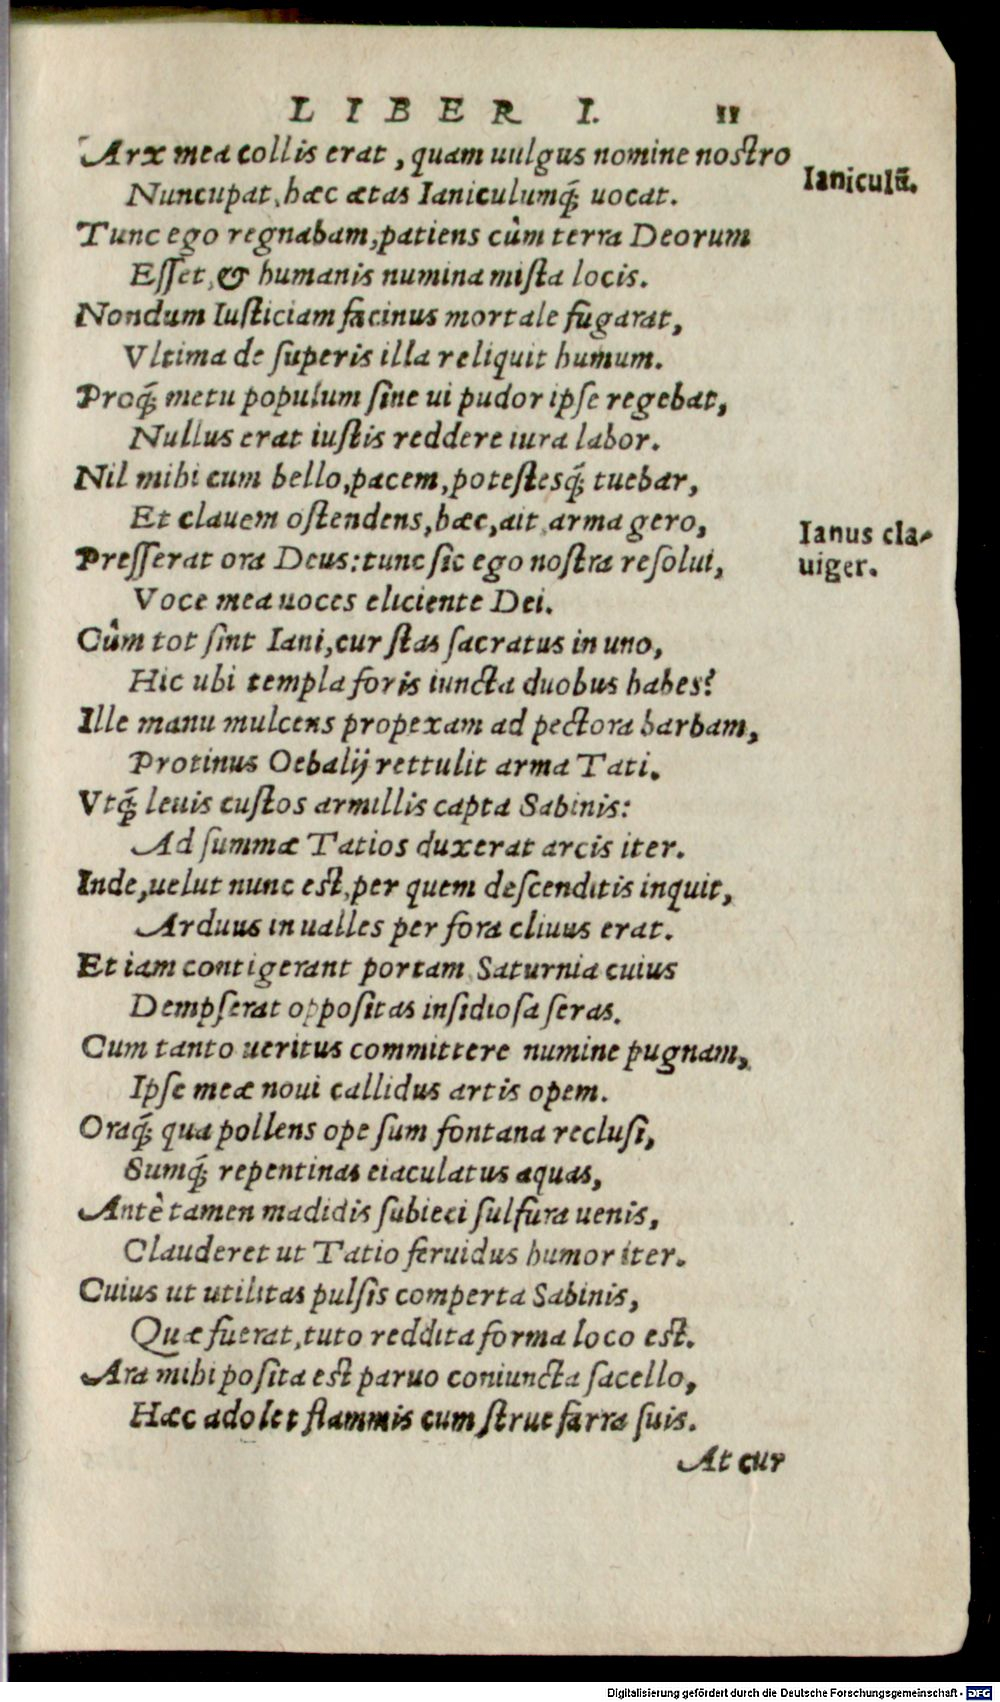 LIBER I. 11
Arx mea collis erat, quam uulgus nomine nostro
Ianiculū.
Nuncupat, hæc ætas Ianiculumq́; uocat.
Tunc ego regnabam, patiens cûm terra Deorum
Eſſet, & humanis numina miſta locis.
Nondum Iuſticiam facinus mortale fugarat,
Vltima de ſuperis illa reliquit humum.
Proq́; metu populum ſine ui pudor ipſe regebat,
Nullus erat iuſtis reddere iura labor.
Nil mihi cum bello, pacem, poteſtesq́; tuebar,
Et clauem oſtendens, hæc, ait, arma gero,
Ianus cla-
uiger.
Preſſerat ora Deus: tunc ſic ego noſtra reſolui,
Voce mea uoces eliciente Dei.
Cûm tot ſint Iani, cur ſtas ſacratus in uno,
Hic ubi templa foris iuncta duobus habes?
Ille manu mulcens propexam ad pectora barbam,
Protinus Oebalij rettulit arma Tati.
Vtq́; leuis cuſtos armillis capta Sabinis:
Ad ſummæ Tatios duxerat arcis iter.
Inde, uelut nunc eſt, per quem deſcenditis inquit,
Arduus in ualles per fora cliuus erat.
Et iam contigerant portam Saturnia cuius
Dempſerat oppoſitas inſidioſa ſeras.
Cum tanto ueritus committere numine pugnam,
Ipſe meæ noui callidus artis opem.
Oraq́; qua pollens ope ſum fontana recluſi,
Sumq́; repentinas eiaculatus aquas,
Antè tamen madidis ſubieci ſulfura uenis,
Clauderet ut Tatio feruidus humor iter.
Cuius ut utilitas pulſis comperta Sabinis,
Quæ fuerat, tuto reddita forma loco eſt.
Ara mihi poſita eſt paruo coniuncta ſacello,
Hæc adolet flammis cum ſtrue farra ſuis.
At cur
Digitalisierung gefördert durch die Deutsche Forschungsgemeinschaft - DFG